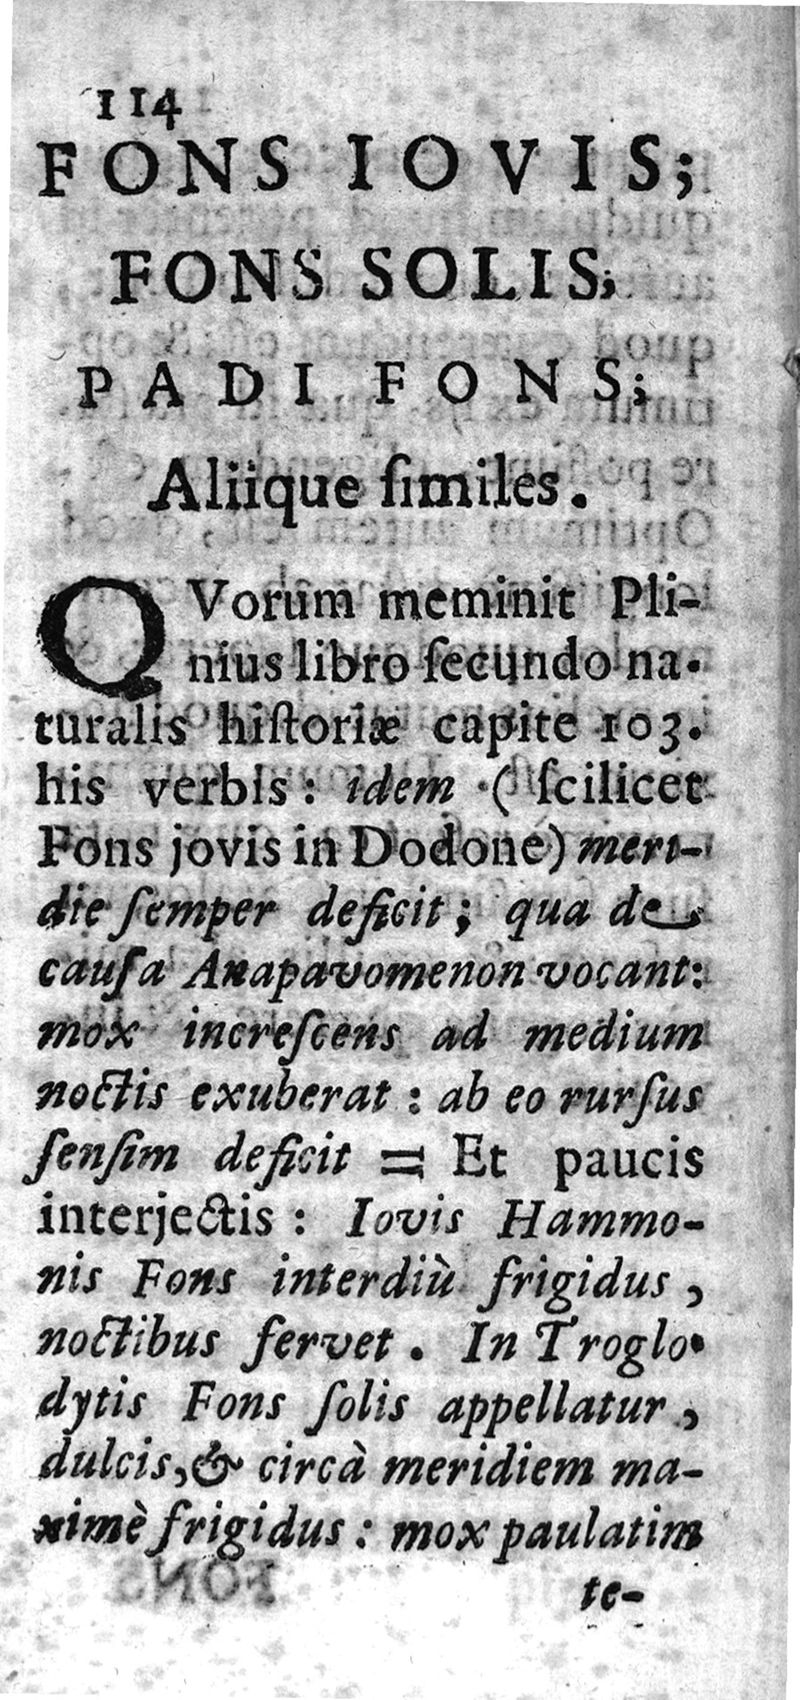 114
FONS IOVIS;
FONS SOLIS;
PADI FONS;
Aliique ſimiles.
QVorum meminit Pli-
nius libro ſecundo na-
turalis hiſtoriæ capite 103.
his verbis: idem (ſcilicet
Fons jovis in Dodone) meri-
die ſemper deficit; qua de
cauſa Anapavomenon vocant:
mox increſcens ad medium
noctis exuberat: ab eo rurſus
ſenſim deficit = Et paucis
interjectis: Iovis Hammo-
nis Fons interdiù frigidus,
noctibus fervet. In Troglo-
dytis Fons ſolis appellatur,
dulcis, & circà meridiem ma-
ximè frigidus: mox paulatim
te-